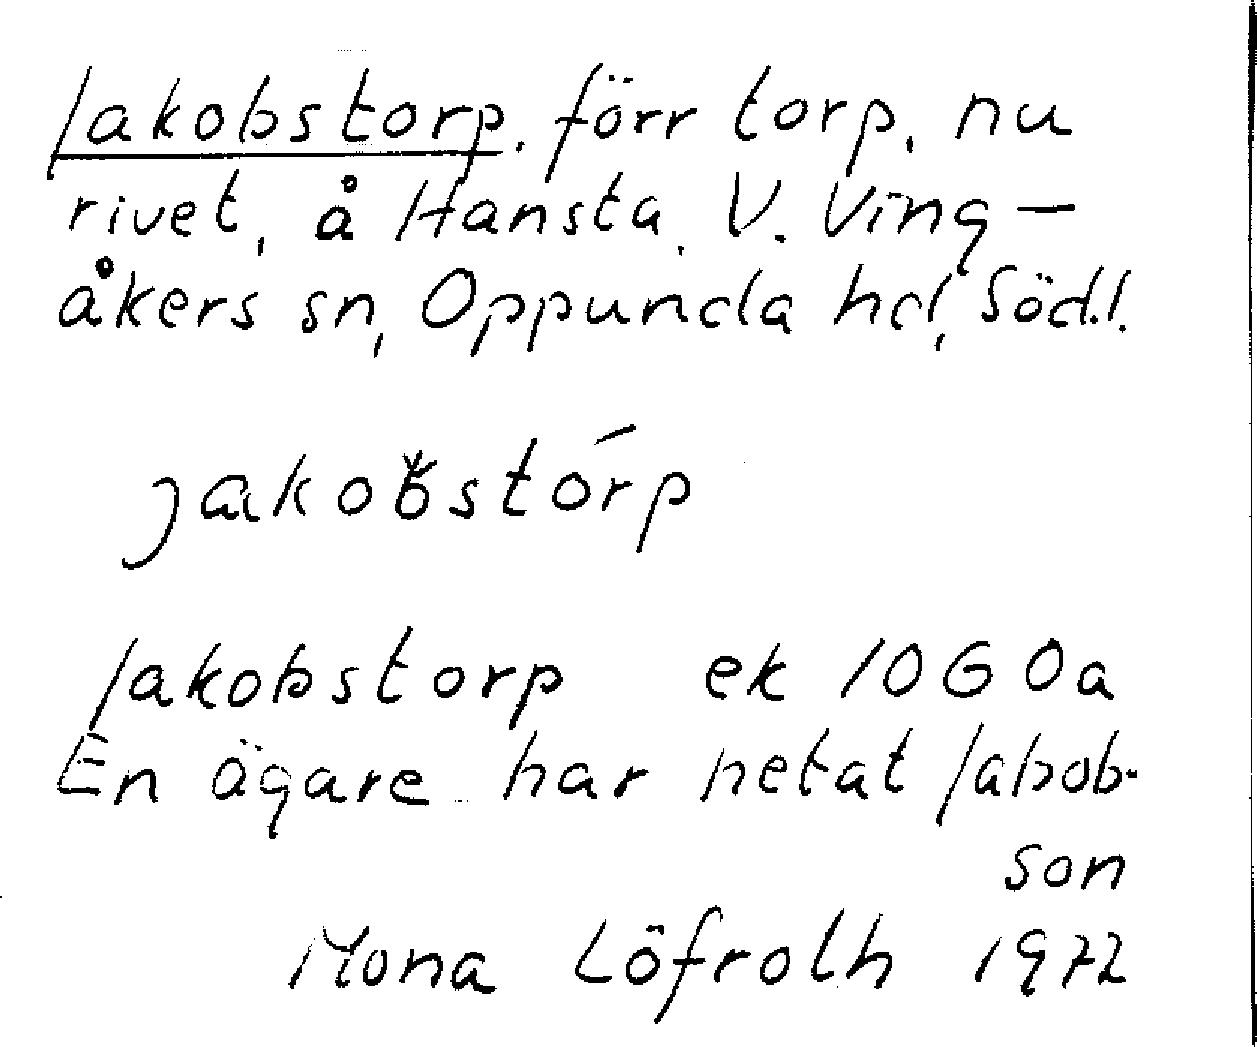 Jakobstorp, förr torp, nu
rivet, å Hansta, V. Ving-
åkers sn, Oppunda hd, Södl.
jakobstórp
Jakobstorp ek 10G 0a
En ägare har hetat Jakob-
son
Mona Löfroth 1972